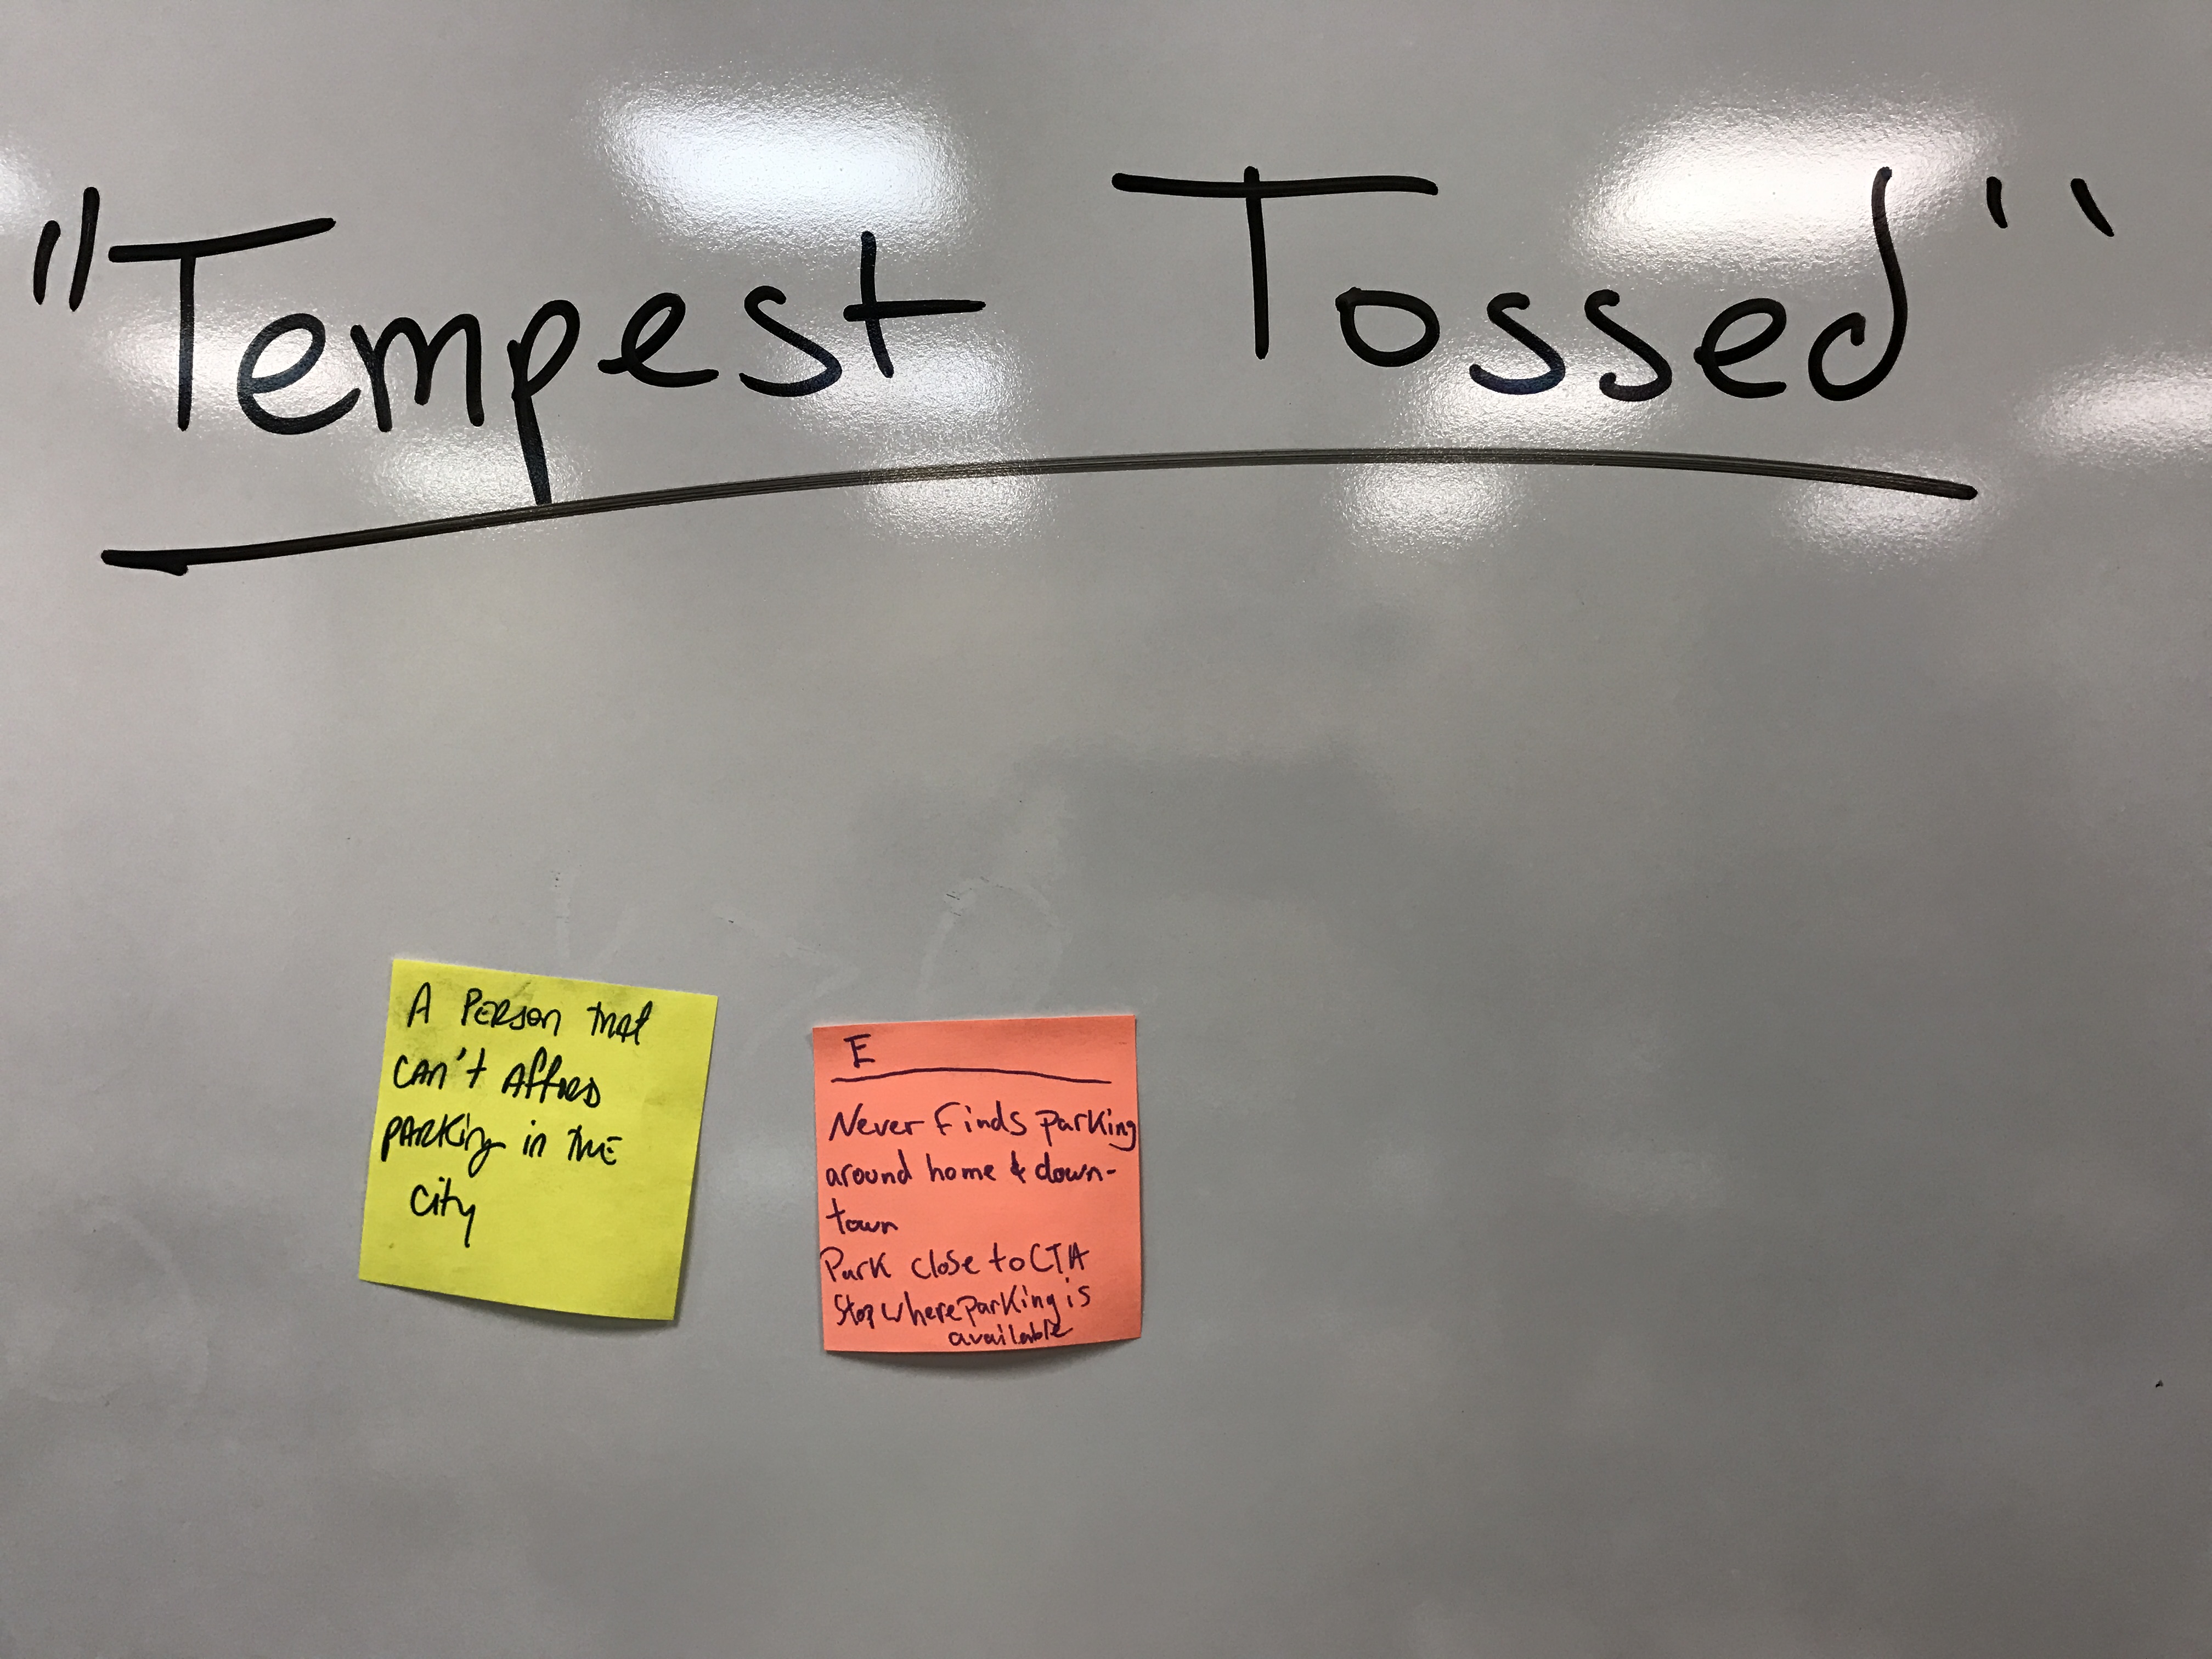 "Tempest Tossed"
A PERSON THAT
CAN'T AFFORD
PARKING in THE
City
E
Never Finds parking
around home & down-
town
Park close to CTA
Stop where parking is
available